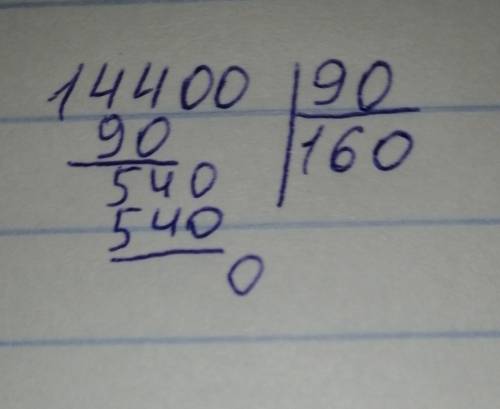 14400 | 90
90 160
540
540
0